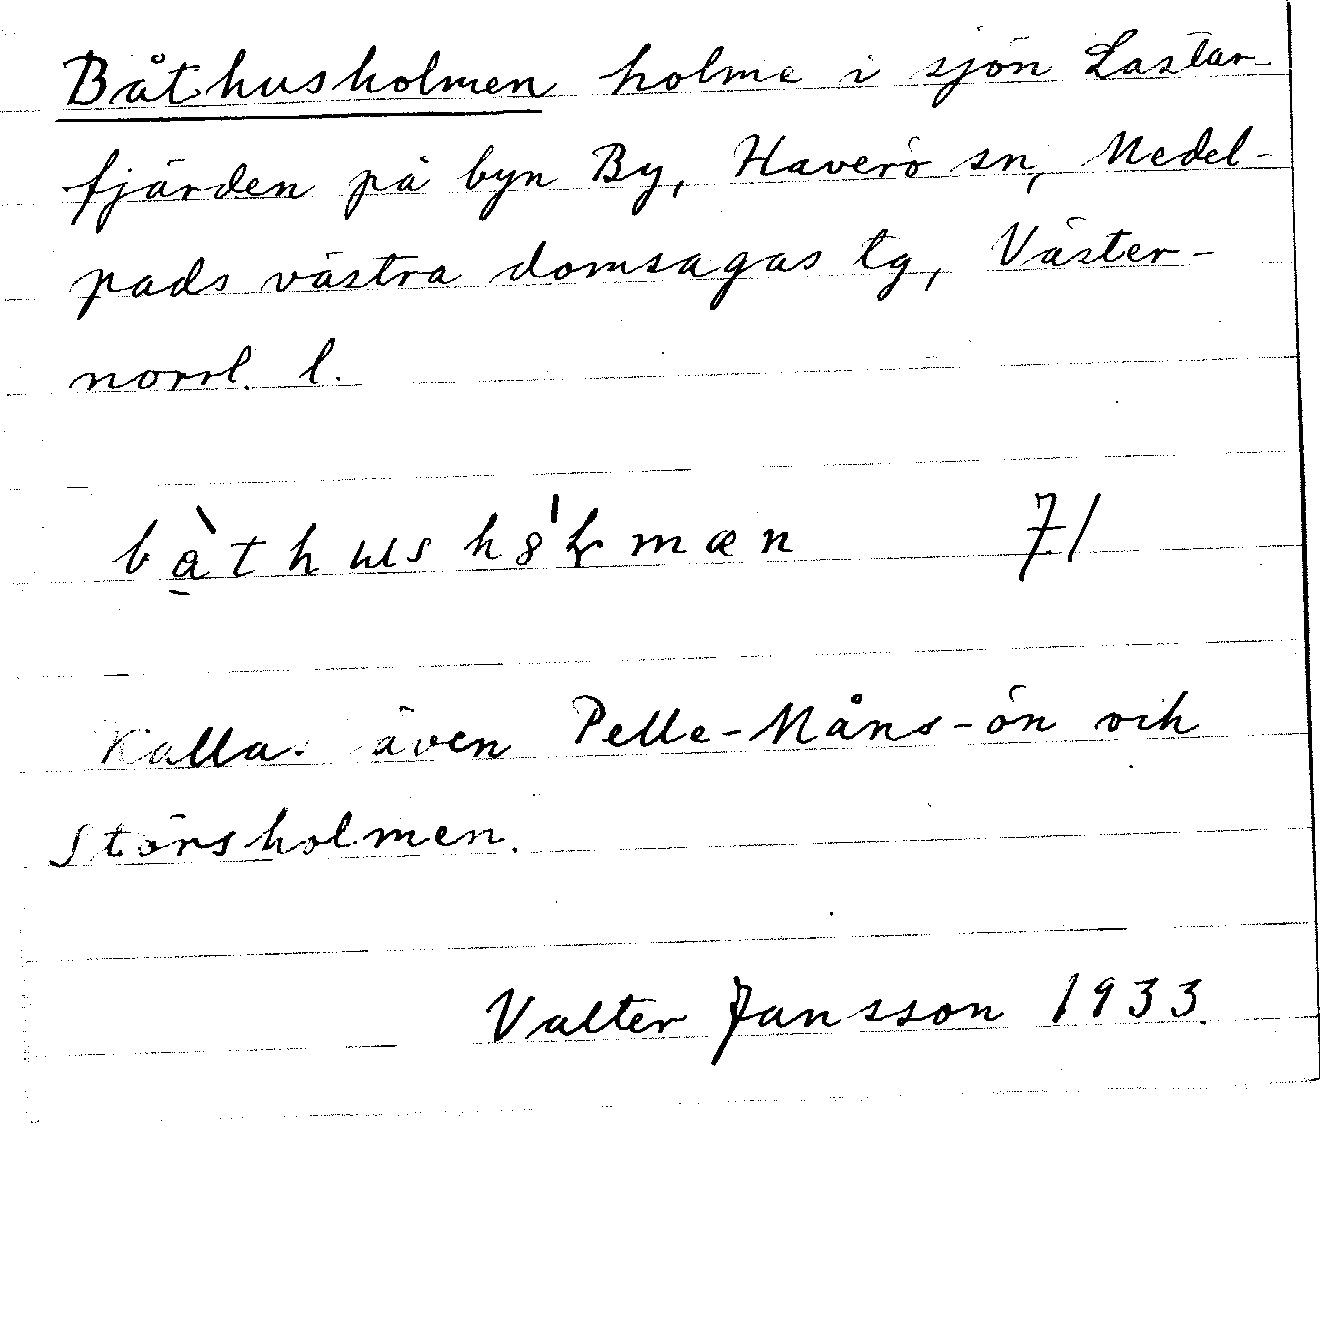 Båthusholmen holme i sjön Lastar-
fjärden på byn By, Haverö sn, Medel-
pads västra domsagas tg, Väster-
norrl. l.
71
Kallas även Pelle-Måns-ön och
Störsholmen.
Valter Jansson 1933.